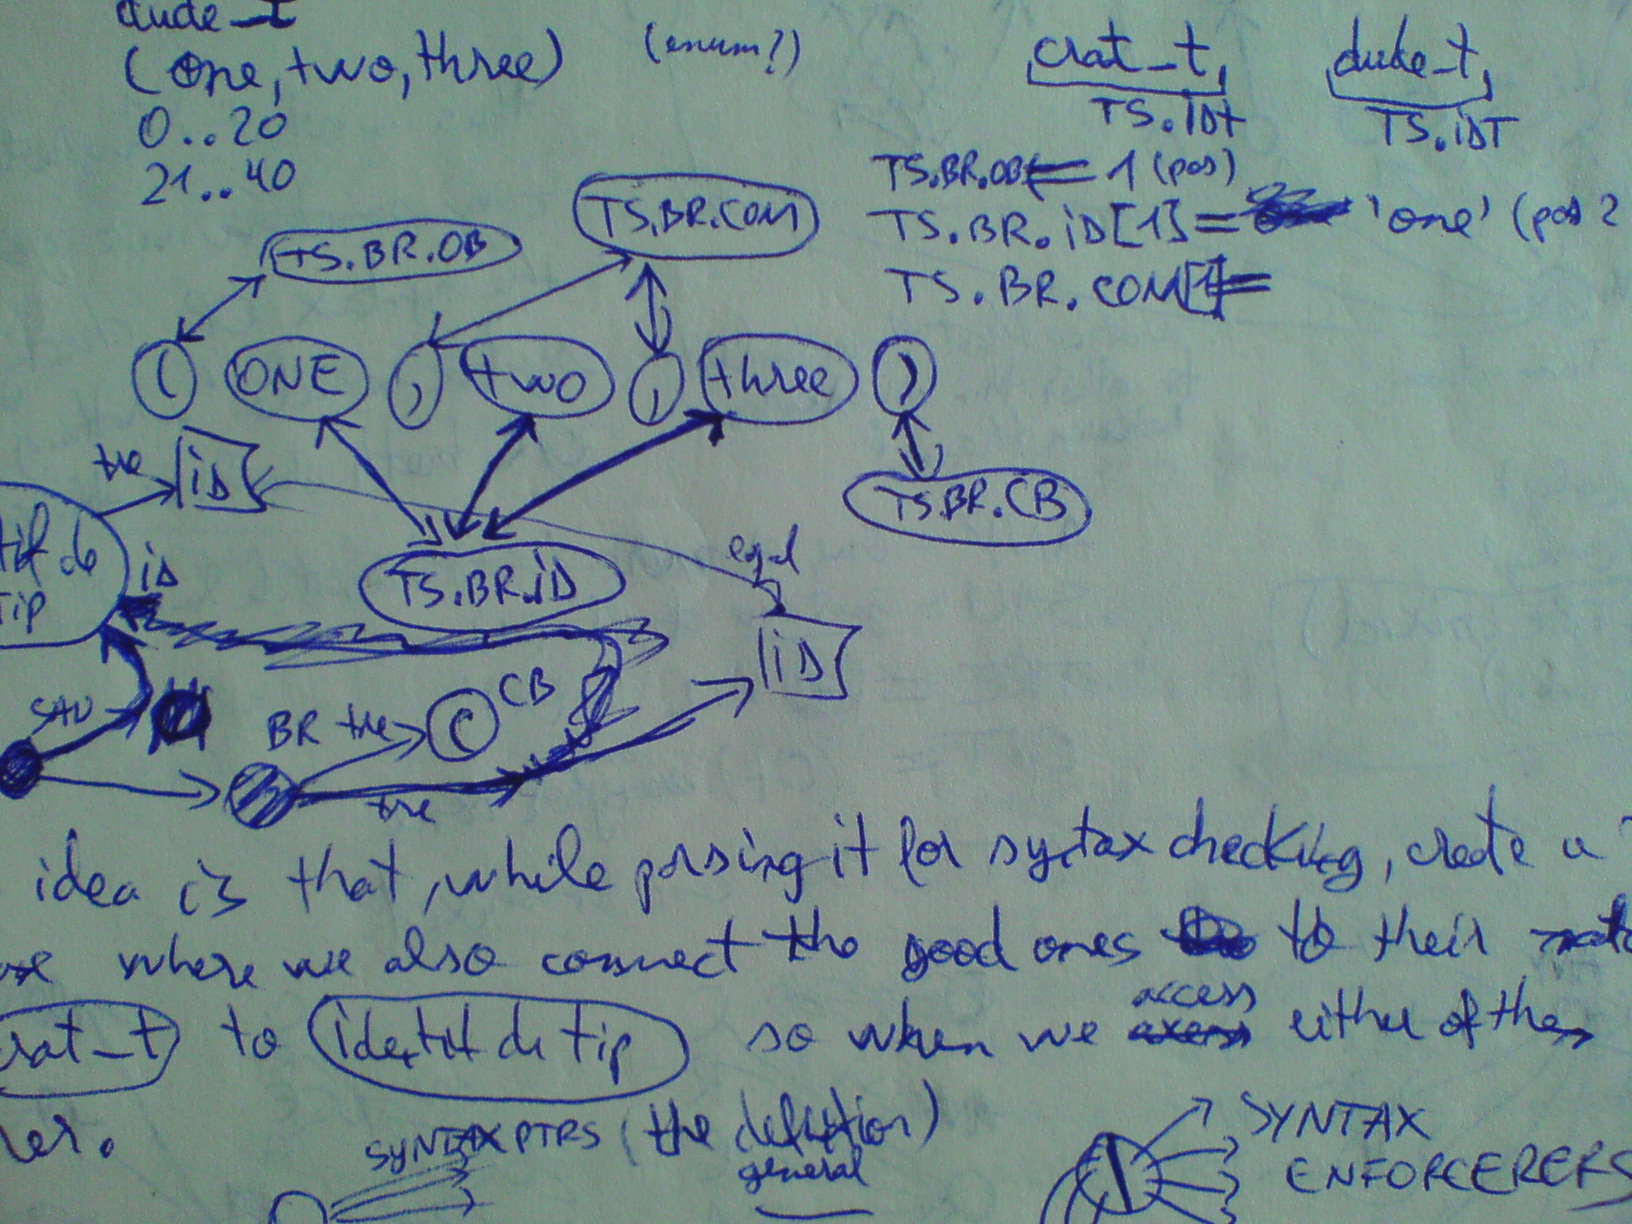 dude_t
(one, two, three) (enum?)
0..20
21..40
crat_t, dude_t,
TS.IDT TS.IDT
TS.BR.OB = 1 (pos)
TS.BR.iD[1] = 'one' (pos 2
TS.BR.COM[1] =
TS.BR.COM
TS.BR.OB
( ONE , two , three )
the iD
TS.BR.CB
TS.BR.iD
iD
Tip
egal
iD
BR the CB
the
idea is that, while parsing it for syntax checking, create a
where we also connect the good ones to their
crat_t to identif de tip so when we access either of them
SYNTAX PTRS (the definition)
general
SYNTAX
ENFORCERERS